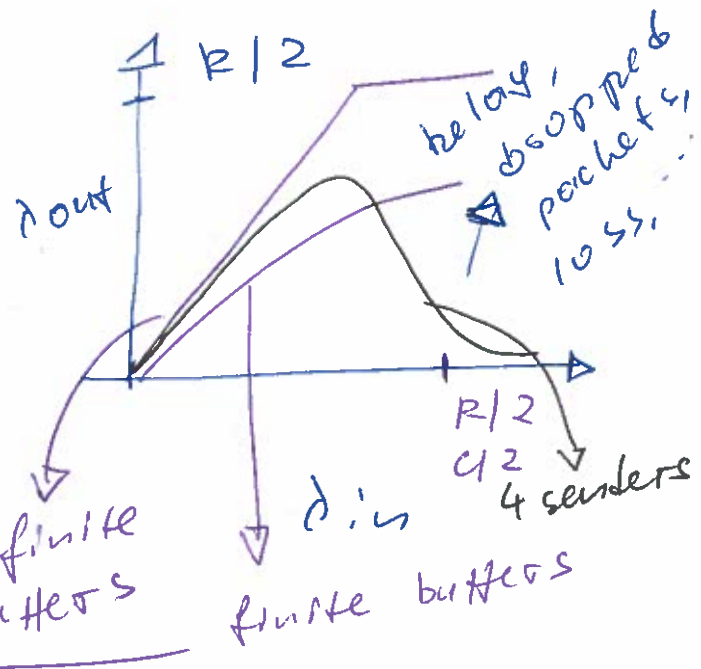 R/2
λout
delay,
dropped
packets,
loss,
R/2
C/2
4 senders
λin
finite
finite buffers